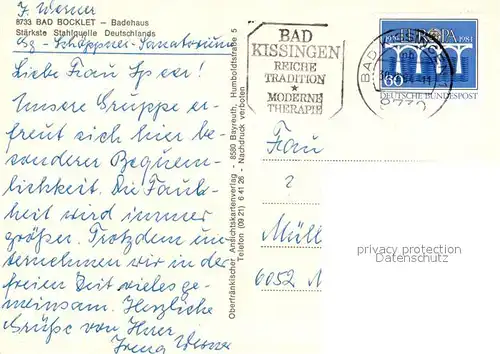 I. Werner
8733 BAD BOCKLET – Badehaus
Stärkste Stahlquelle Deutschlands
Liebe Frau Speer!
Unsere Gruppe er-
freut sich hier be-
sonderer Bequem-
lichkeit. Die Faul-
heit wird immer
größer. Trotzdem un-
ternehmen wir in der
freien Zeit vieles ge-
meinsam. Herzliche
Grüße von Ihrer
Irena Werner
Oberfränkischer Ansichtskartenverlag - 8580 Bayreuth, Humboldtstraße 5
Telefon (09 21) 6 41 26 - Nachdruck verboten
BAD
KISSINGEN
REICHE
TRADITION
★
MODERNE
THERAPIE
EUROPA
1984
60
DEUTSCHE BUNDESPOST
8730
Frau
Müll
6052 M
privacy protection
Datenschutz